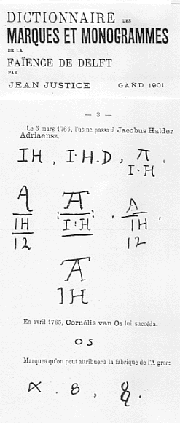 DICTIONNAIRE DES
MARQUES ET MONOGRAMMES
DE LA
FAÏENCE DE DELFT
PAR
JEAN JUSTICE GAND 1901
— 3 —
Le 3 mars 1765, l'usine passe à Jacobus Halder
Adriaensz.
IH, I·H·D, A
I·H
A A A
IH I·H IH
12 12
A
IH
En avril 1768, Cornélis van Os lui succéda.
OS
Marques qu'on peut attribuer à la fabrique de l'A grec